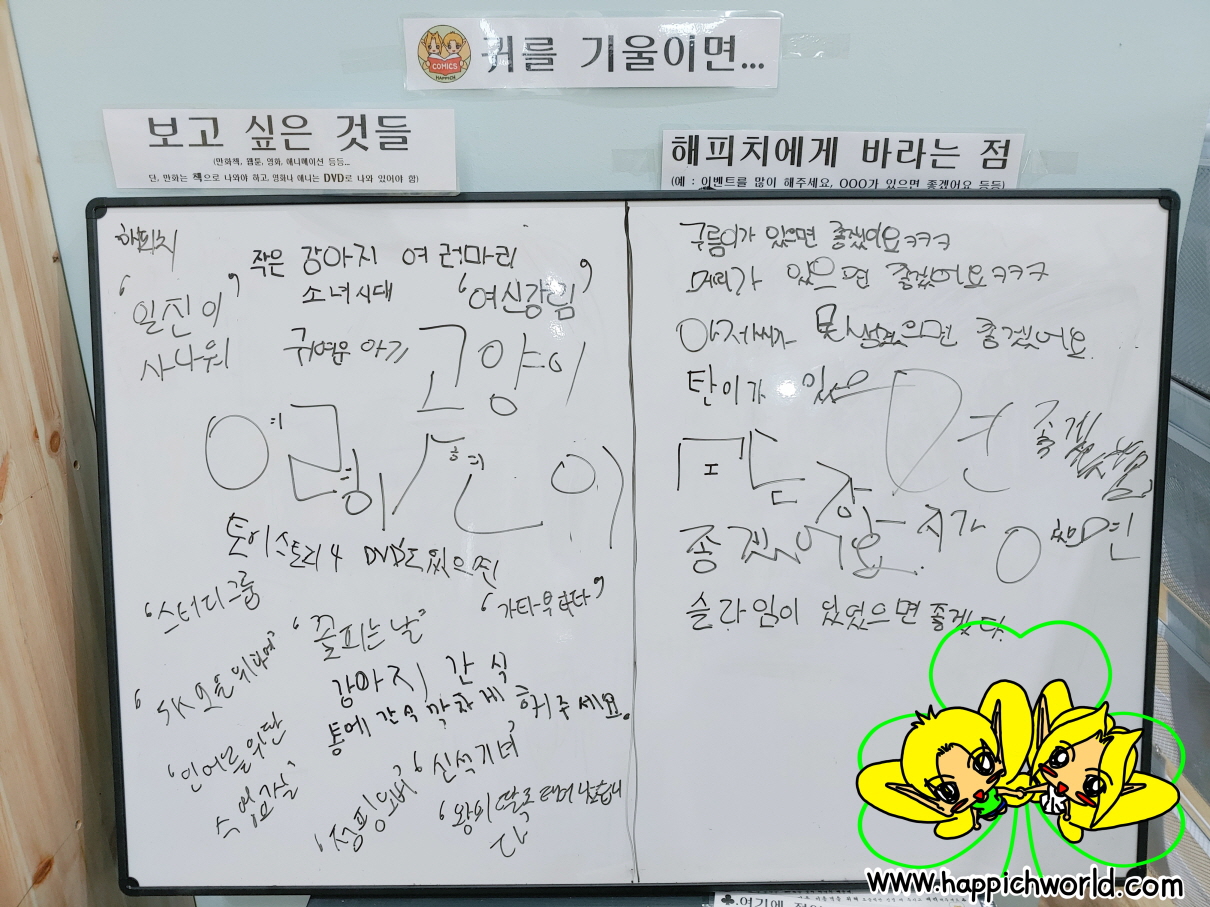 귀를 기울이면...
COMICS
HAPPICH
보고 싶은 것들
(만화책, 웹툰, 영화, 애니메이션 등등...
단, 만화는 책으로 나와야 하고, 영화나 애니는 DVD로 나와 있어야 함)
해피치
작은 강아지 여러마리
'일진이
사나워'
소녀시대
'여신강림'
귀여운 아기 고양이
토이스토리4 DVD도 있으면
'스터디그룹
'가타부타'
"꽃피는 날"
강아지 간식
통에 간식 깍차게 해주세요.
'인어를 위한
수영교실'
'점핑오버'
'신석기녀'
'왕의 딸로 태어났습니
다
해피치에게 바라는 점
(예 : 이벤트를 많이 해주세요, OOO가 있으면 좋겠어요 등등)
구름이가 있으면 좋겠어요ㅋㅋㅋ
메리가 있으면 좋겠어요ㅋㅋㅋ
탄이가 있으면 좋겠
좋겠어요
슬라임이 있었으면 좋겠다.
www.happichworld.com